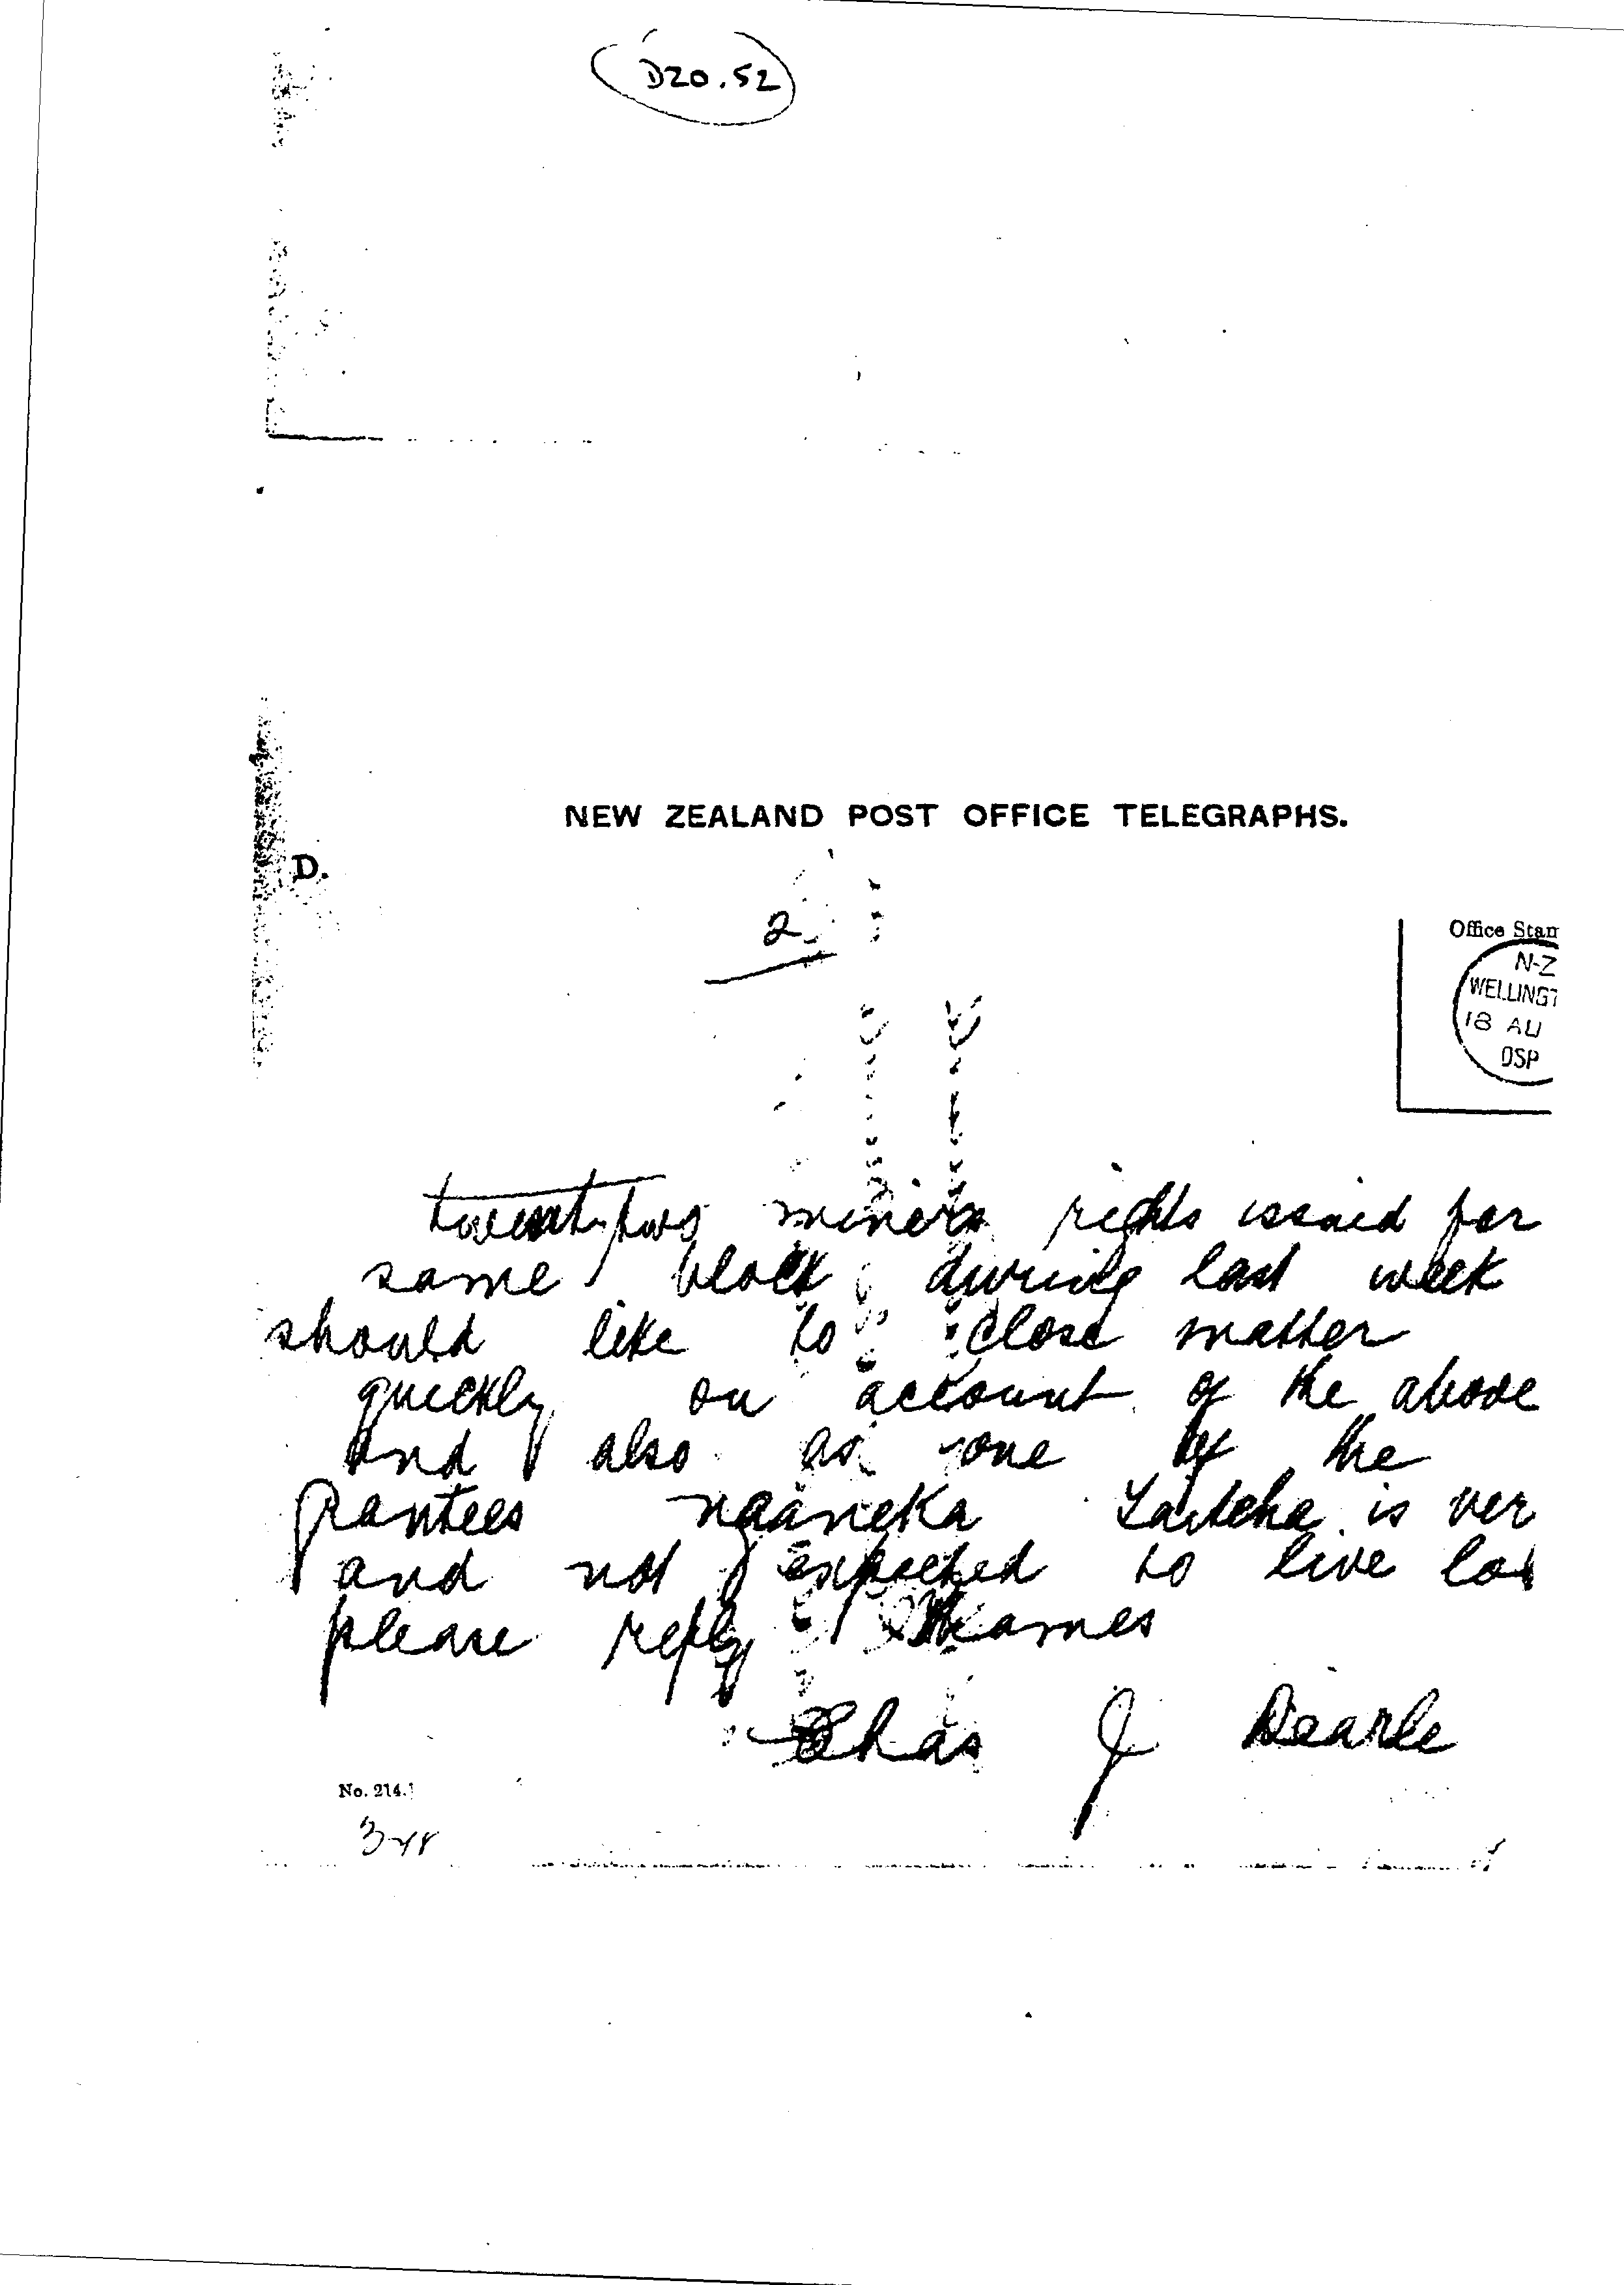 D20.52
NEW ZEALAND POST OFFICE TELEGRAPHS.
D.
2
Office Stam
N-Z
WELLINGT
18 AU
OSP
twenty two miners rights issued for
same block during last week
should like to close matter
quickly on account of the above
and also as one of the
grantees is ver
and not expected to live lo
please reply Thames
Chas J Dearle
No. 214.]